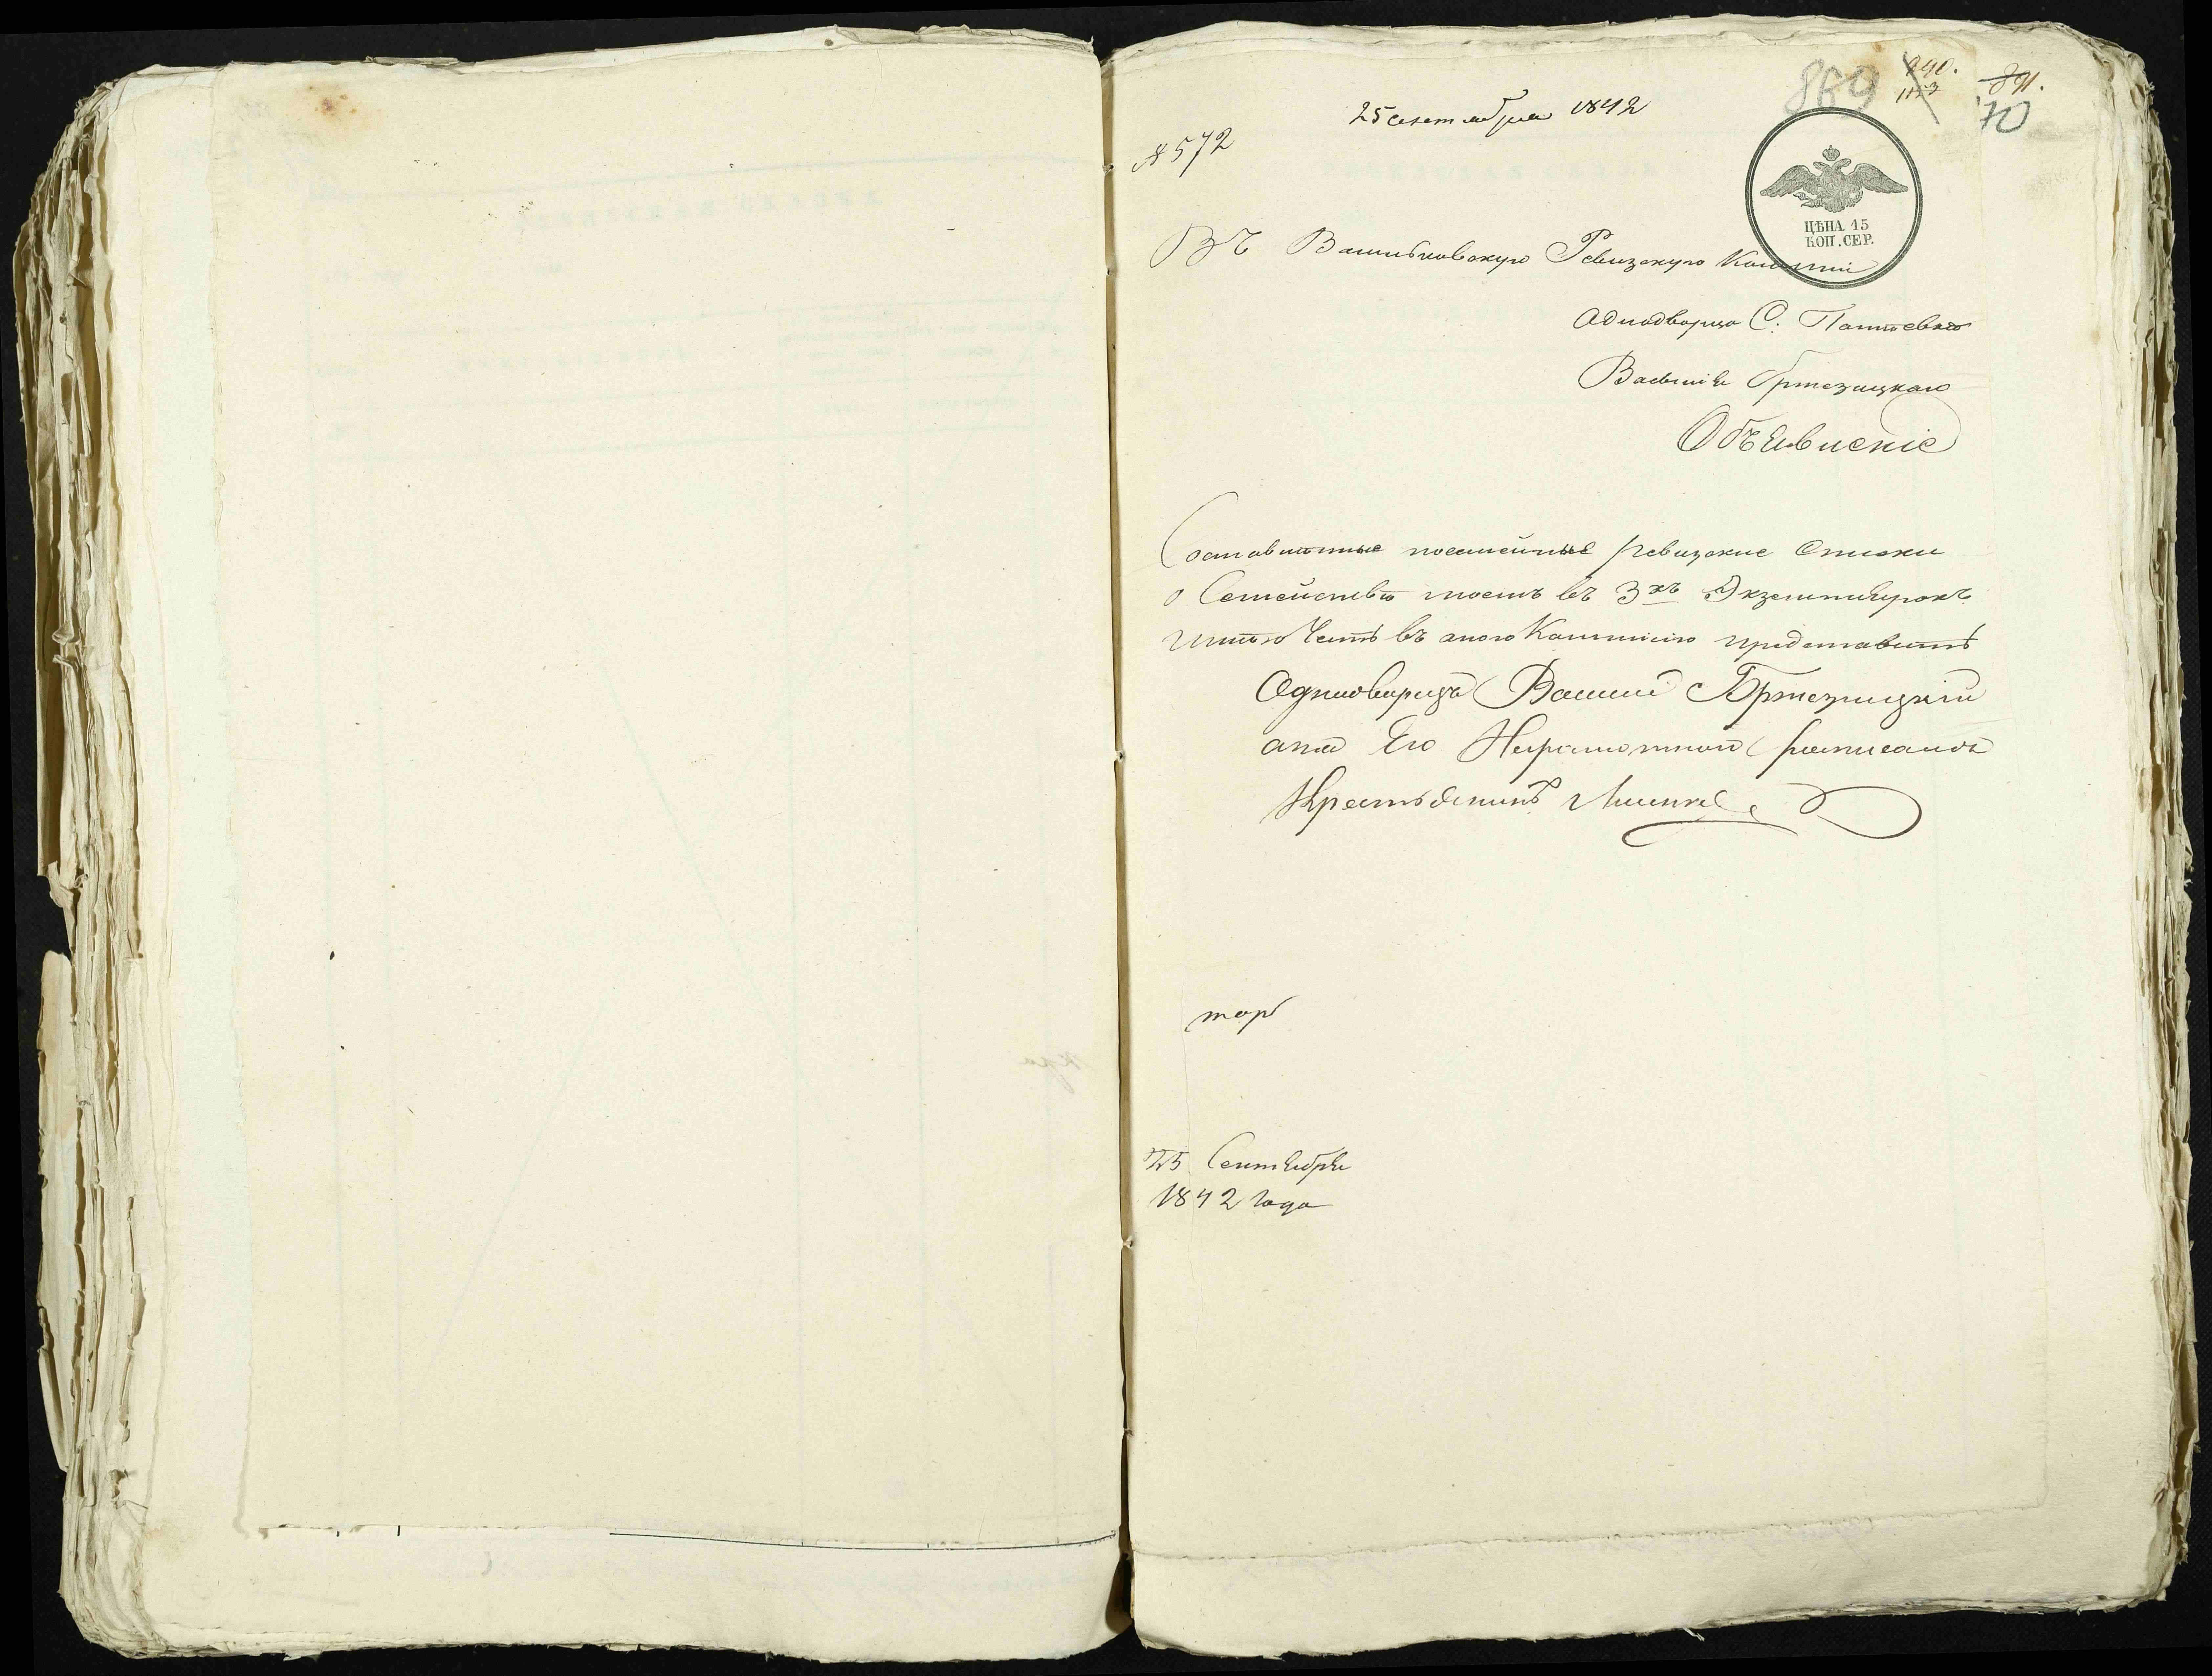 869
240.
1153
891.
70
25 сентября 1842
№ 572
ЦѢНА 15
КОП. СЕР.
Въ Васильковскую Ревизскую Комисiю
Однодворца С:
Василія Бржезицкаго
Объявленіе
Составленные посемейные ревизские списки
о Семействѣ моемъ въ 3хъ Экземплярахъ
имѣю Честь въ оную Коммисію представить
Однодворецъ Василій Бржезицкій
а за Его Неграмотной росписался
Крестьянинъ
25 Сентября
1842 года